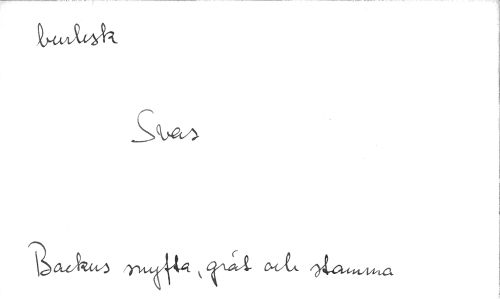 burlesk
Svas
Backus snyfta, gråt och stamma